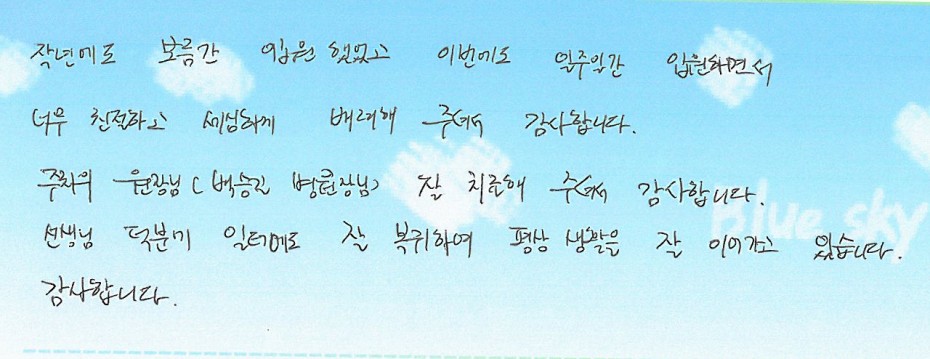 작년에도 보름간 입원했었고 이번에도 일주일간 입원하면서
너무 친절하고 세심하게 배려해 주셔서 감사합니다.
주치의 원장님(백승진 병원장님) 잘 치료해 주셔서 감사합니다.
선생님 덕분에 일터에도 잘 복귀하여 평상 생활을 잘 이어가고 있습니다.
감사합니다.
Blue sky